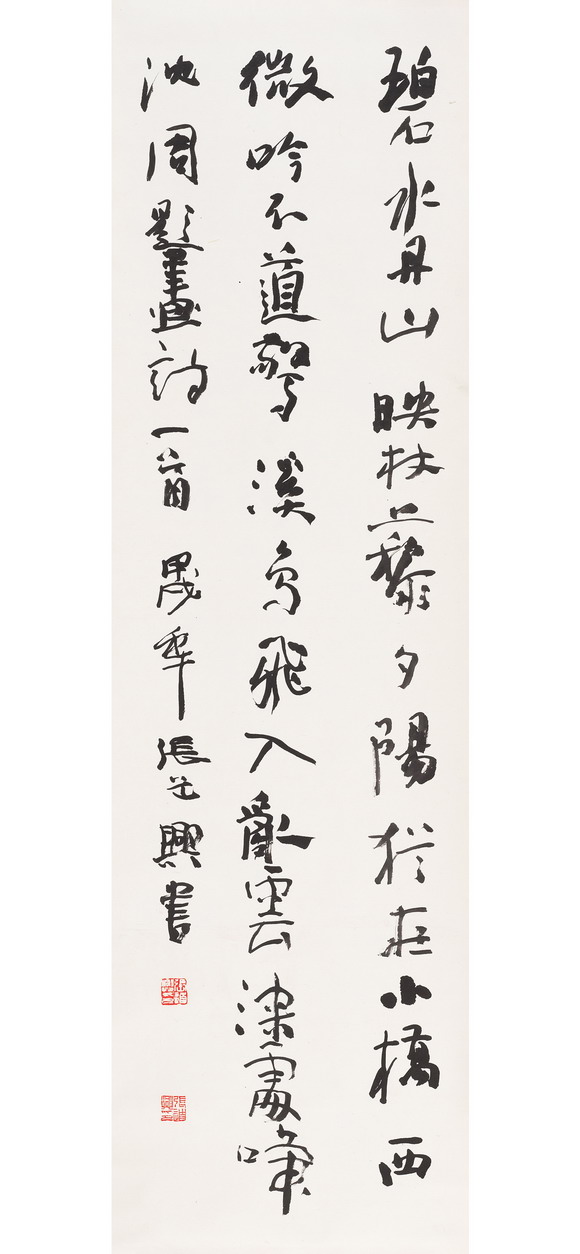 碧水丹山映杖藜夕陽猶在小橋西
微吟不道驚溪鳥飛入亂雲深處啼
沈周題畫詩一首 甲戌年 張道興書